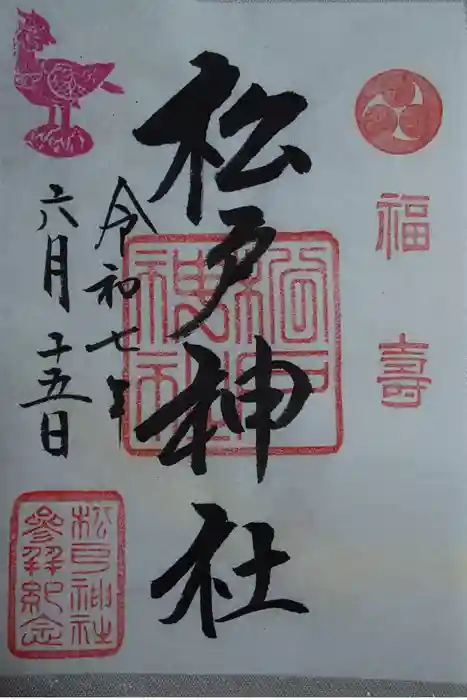 福壽
松戸神社
松戸神社
令和七年
六月十五日
松戸神社
參拜紀念